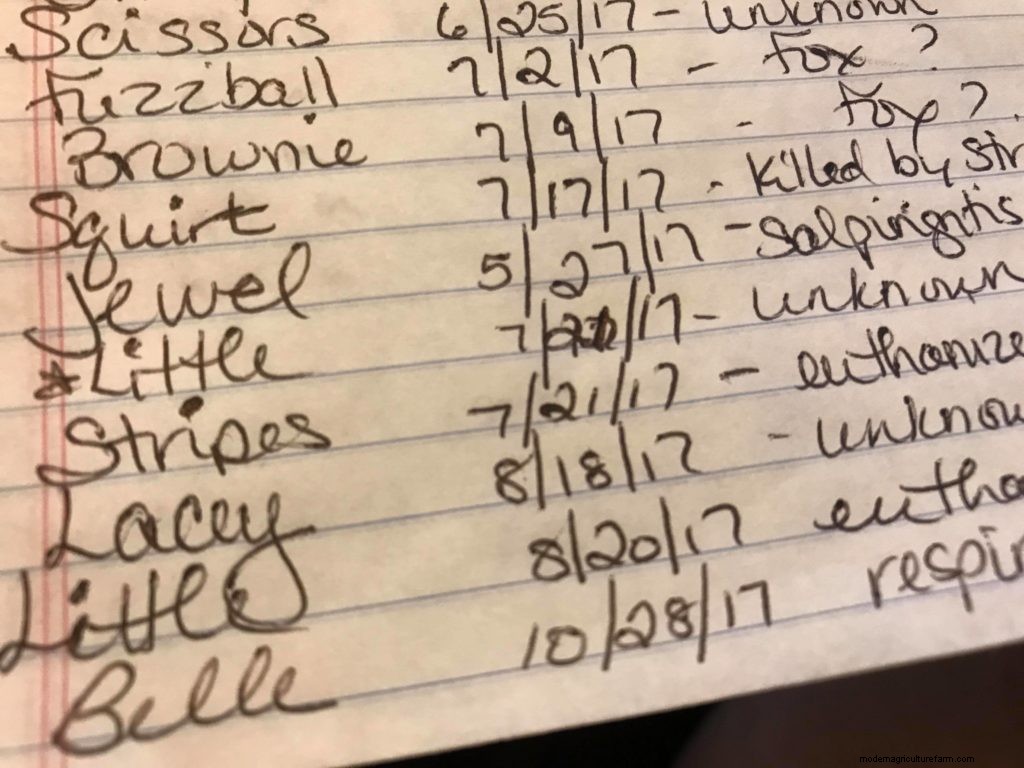 Scissors 6/25/17 - unknown
Fuzzball 7/2/17 - Fox ?
Brownie 7/9/17 - Fox?
Squirt 7/17/17 - Killed by Str
Jewel 5/27/17 - Salpingitis
*Little /17 - unknown
Stripes 7/21/17 - euthanize
Lacey 8/18/17 - unknow
Little 8/20/17 eutha
Belle 10/28/17 respir
modernagriculturefarm.com